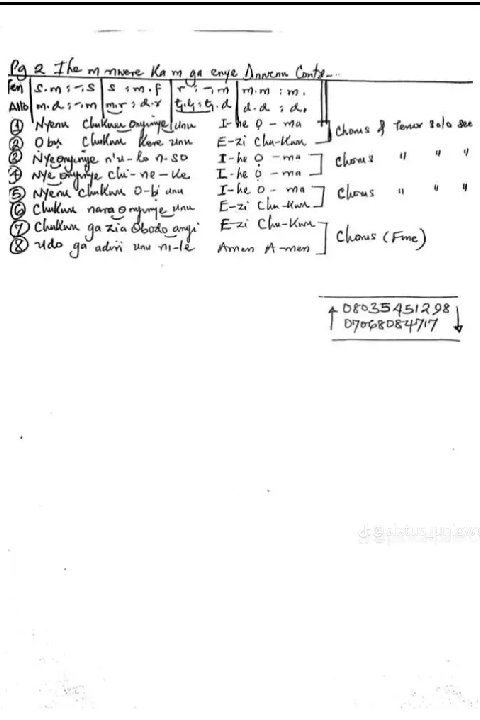 Pg 2 Ihe m nwere Ka m ga enye Nnwem Contd...
Ten | s.m:-.s | s :m.f | r :-.m | m.m :m.
Alto | m.d:-.m | m.r:d.r | t₁.l₁:t₁.d | d.d :d.
① Nyenu Chukwu onyinye unu I-he Ọ-ma
② Obi Chukwu Kere unu E-zi Chu-Kwu
Chorus & Tenor Solo see
③ Nye onyinye n'u-lo n-so I-he Ọ-ma
④ Nye onyinye Chi-ne-Ke I-he Ọ-ma
Chorus " "
⑤ Nyenu Chukwu O-bi unu I-he Ọ-ma
⑥ Chukwu nara onyinye unu E-zi Chu-Kwu
Chorus " " "
⑦ Chukwu ga zia obodo anyi E-zi Chu-Kwu
⑧ Udo ga adiri unu ni-le Amen A-men
Chorus (Fine)
08035451298
07068084717